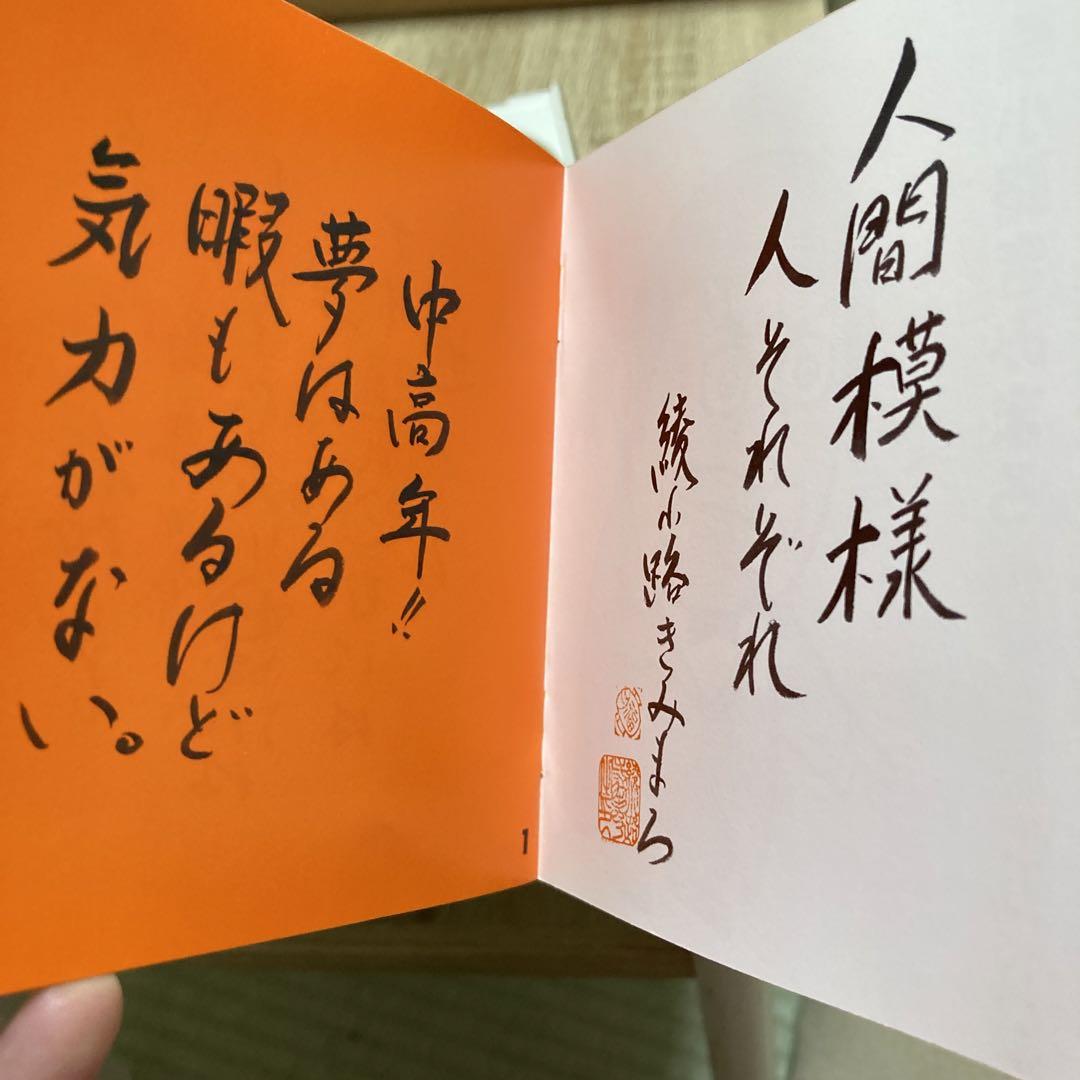 人間模様
人それぞれ
綾小路きみまろ
中高年!!
夢はある
暇もあるけど
気力がない。
1